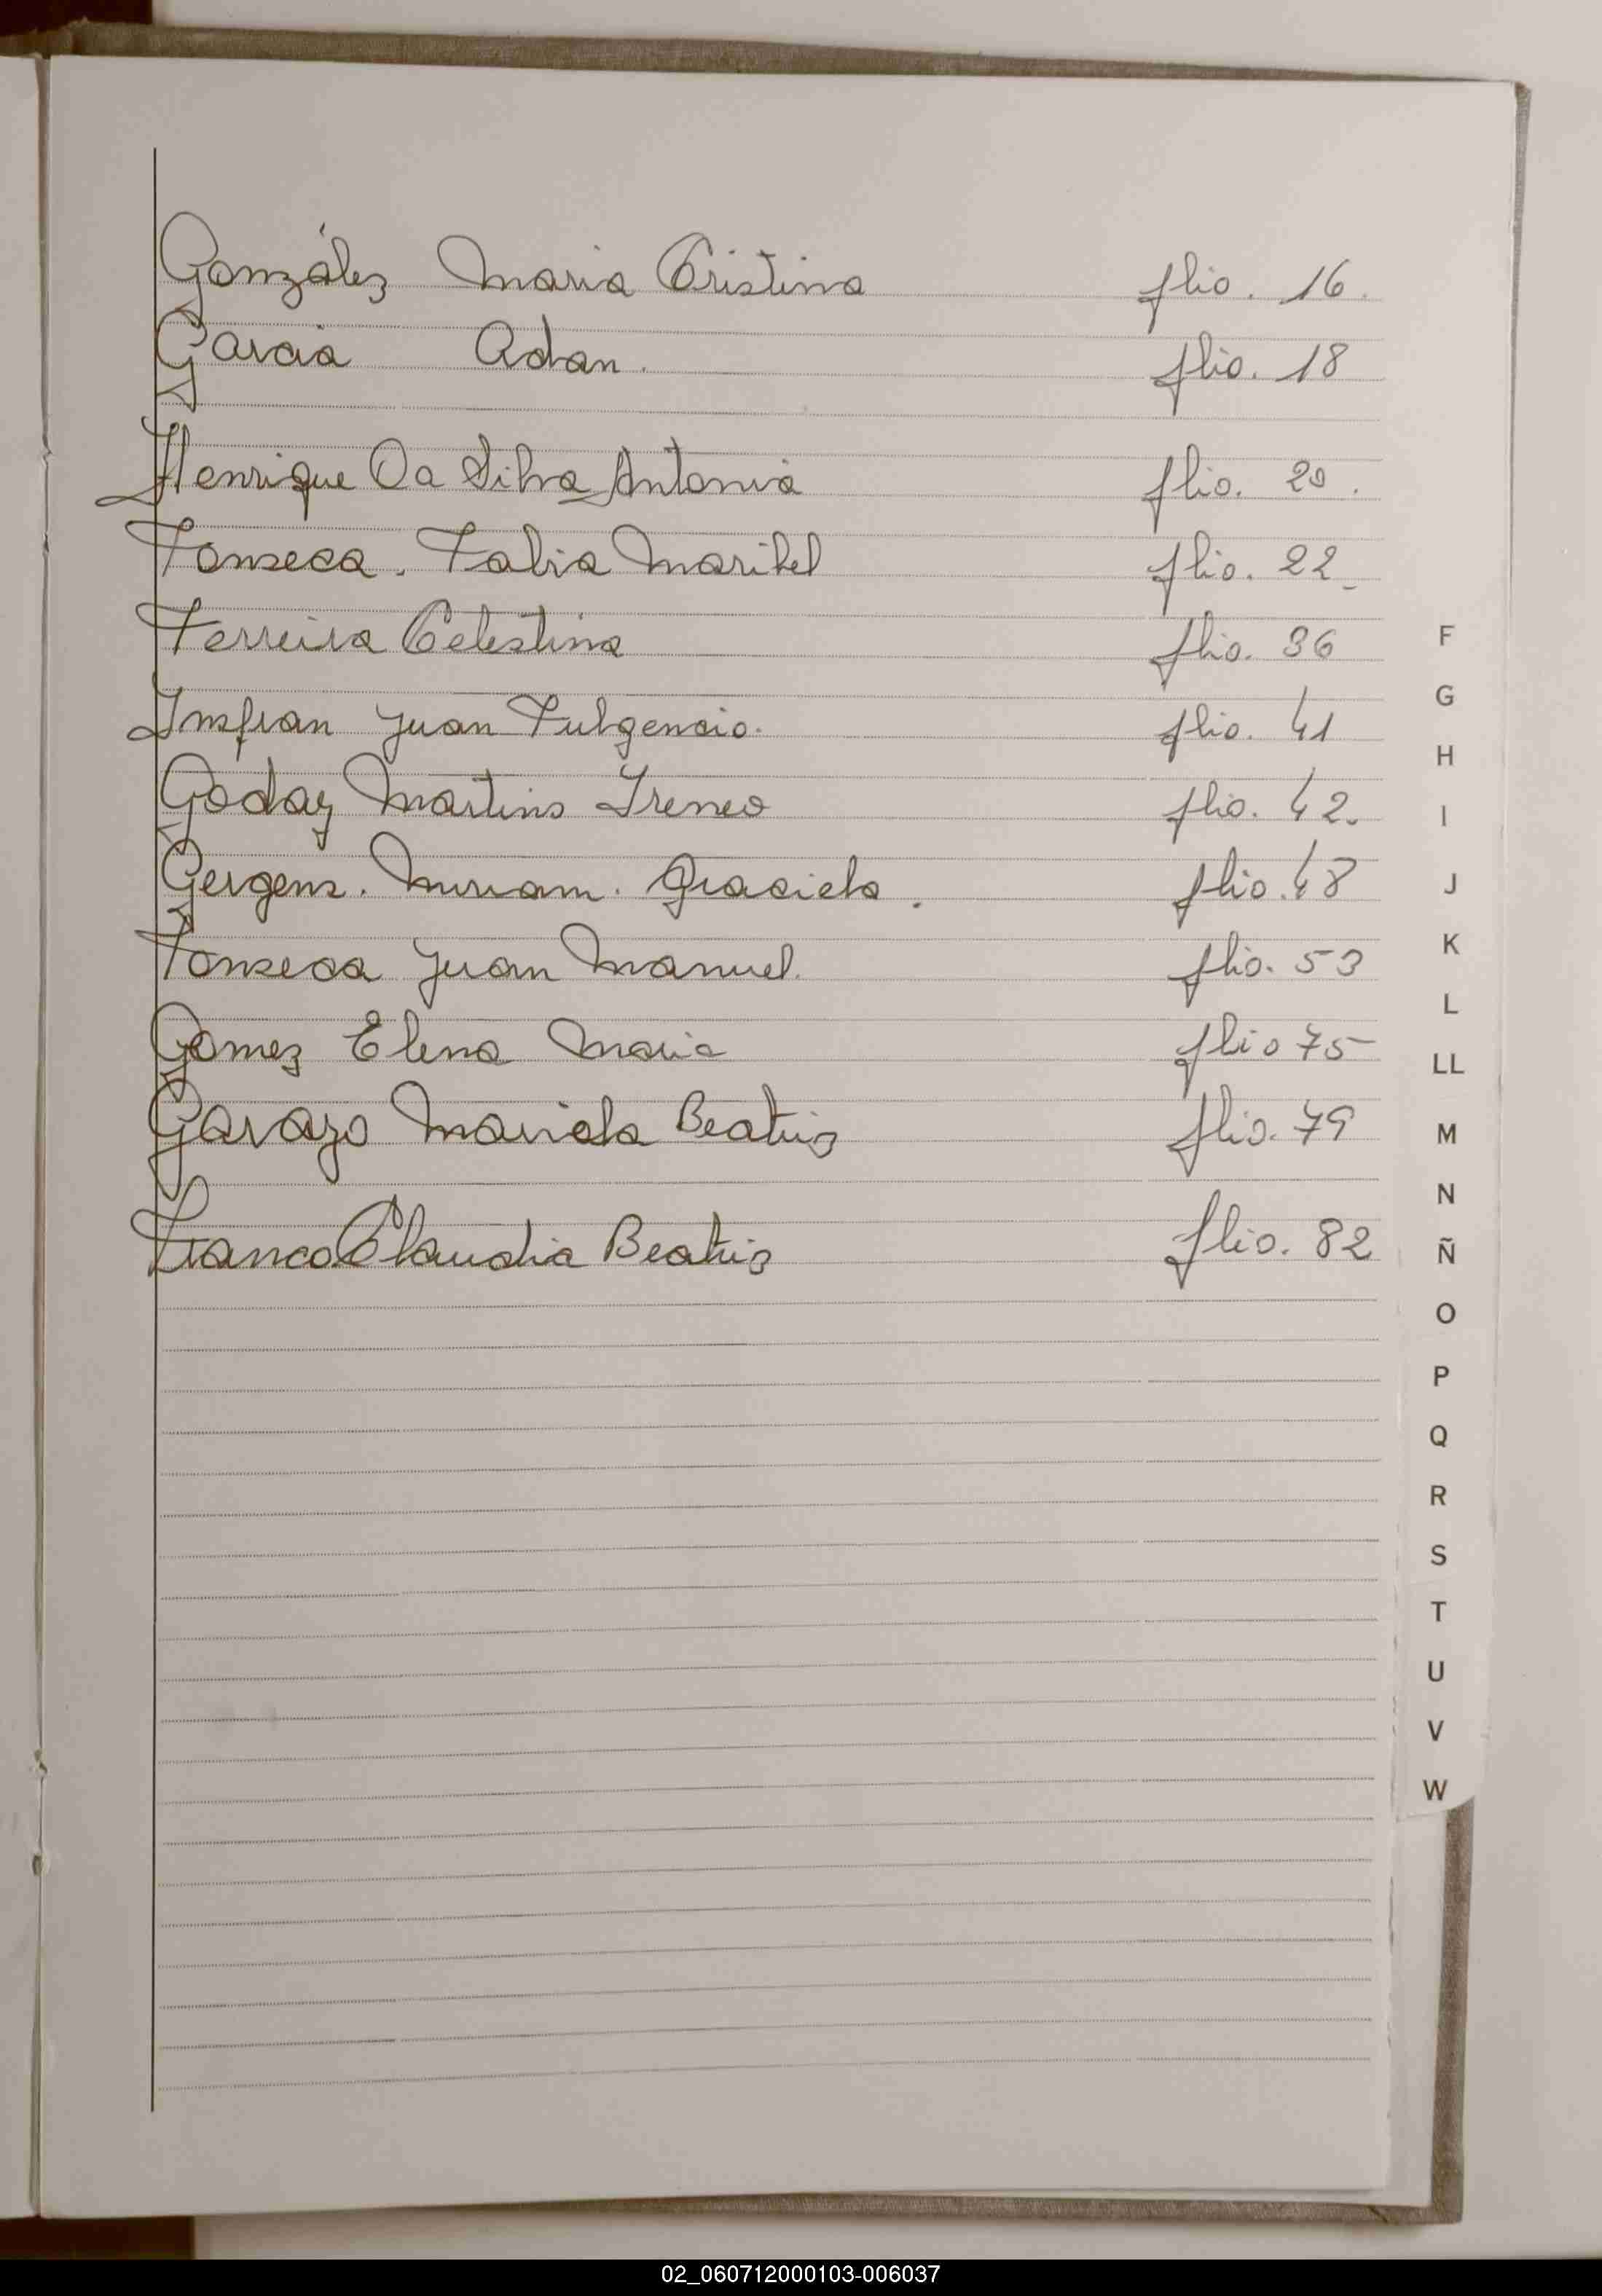 González Maria Cristina flio. 16.
Garcia Adan. flio. 18
Henrique Da Silva Antonia flio. 20.
Fonseca. Fabia Maribel flio. 22
Ferreira Celestina flio. 36
Insfran Juan Fulgencio. flio. 41
Goday Martins Ireneo flio. 42.
Gergens. Miriam. Graciela. flio. 48
Fonseca Juan Manuel. flio. 53
Gomez Elena Maria flio 75
Garazo Mariela Beatriz flio. 79
Franco Claudia Beatriz flio. 82
F
G
H
I
J
K
L
LL
M
N
Ñ
O
P
Q
R
S
T
U
V
W
02_060712000103-006037